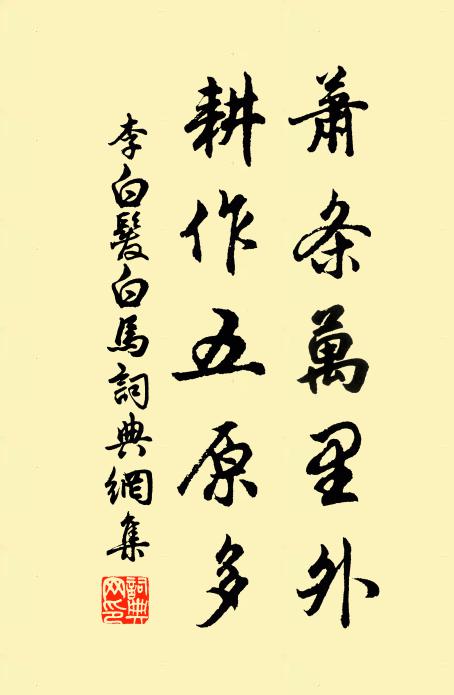 蕭条萬里外
耕作五原多
李白髮白馬詞典網集
詞典网印